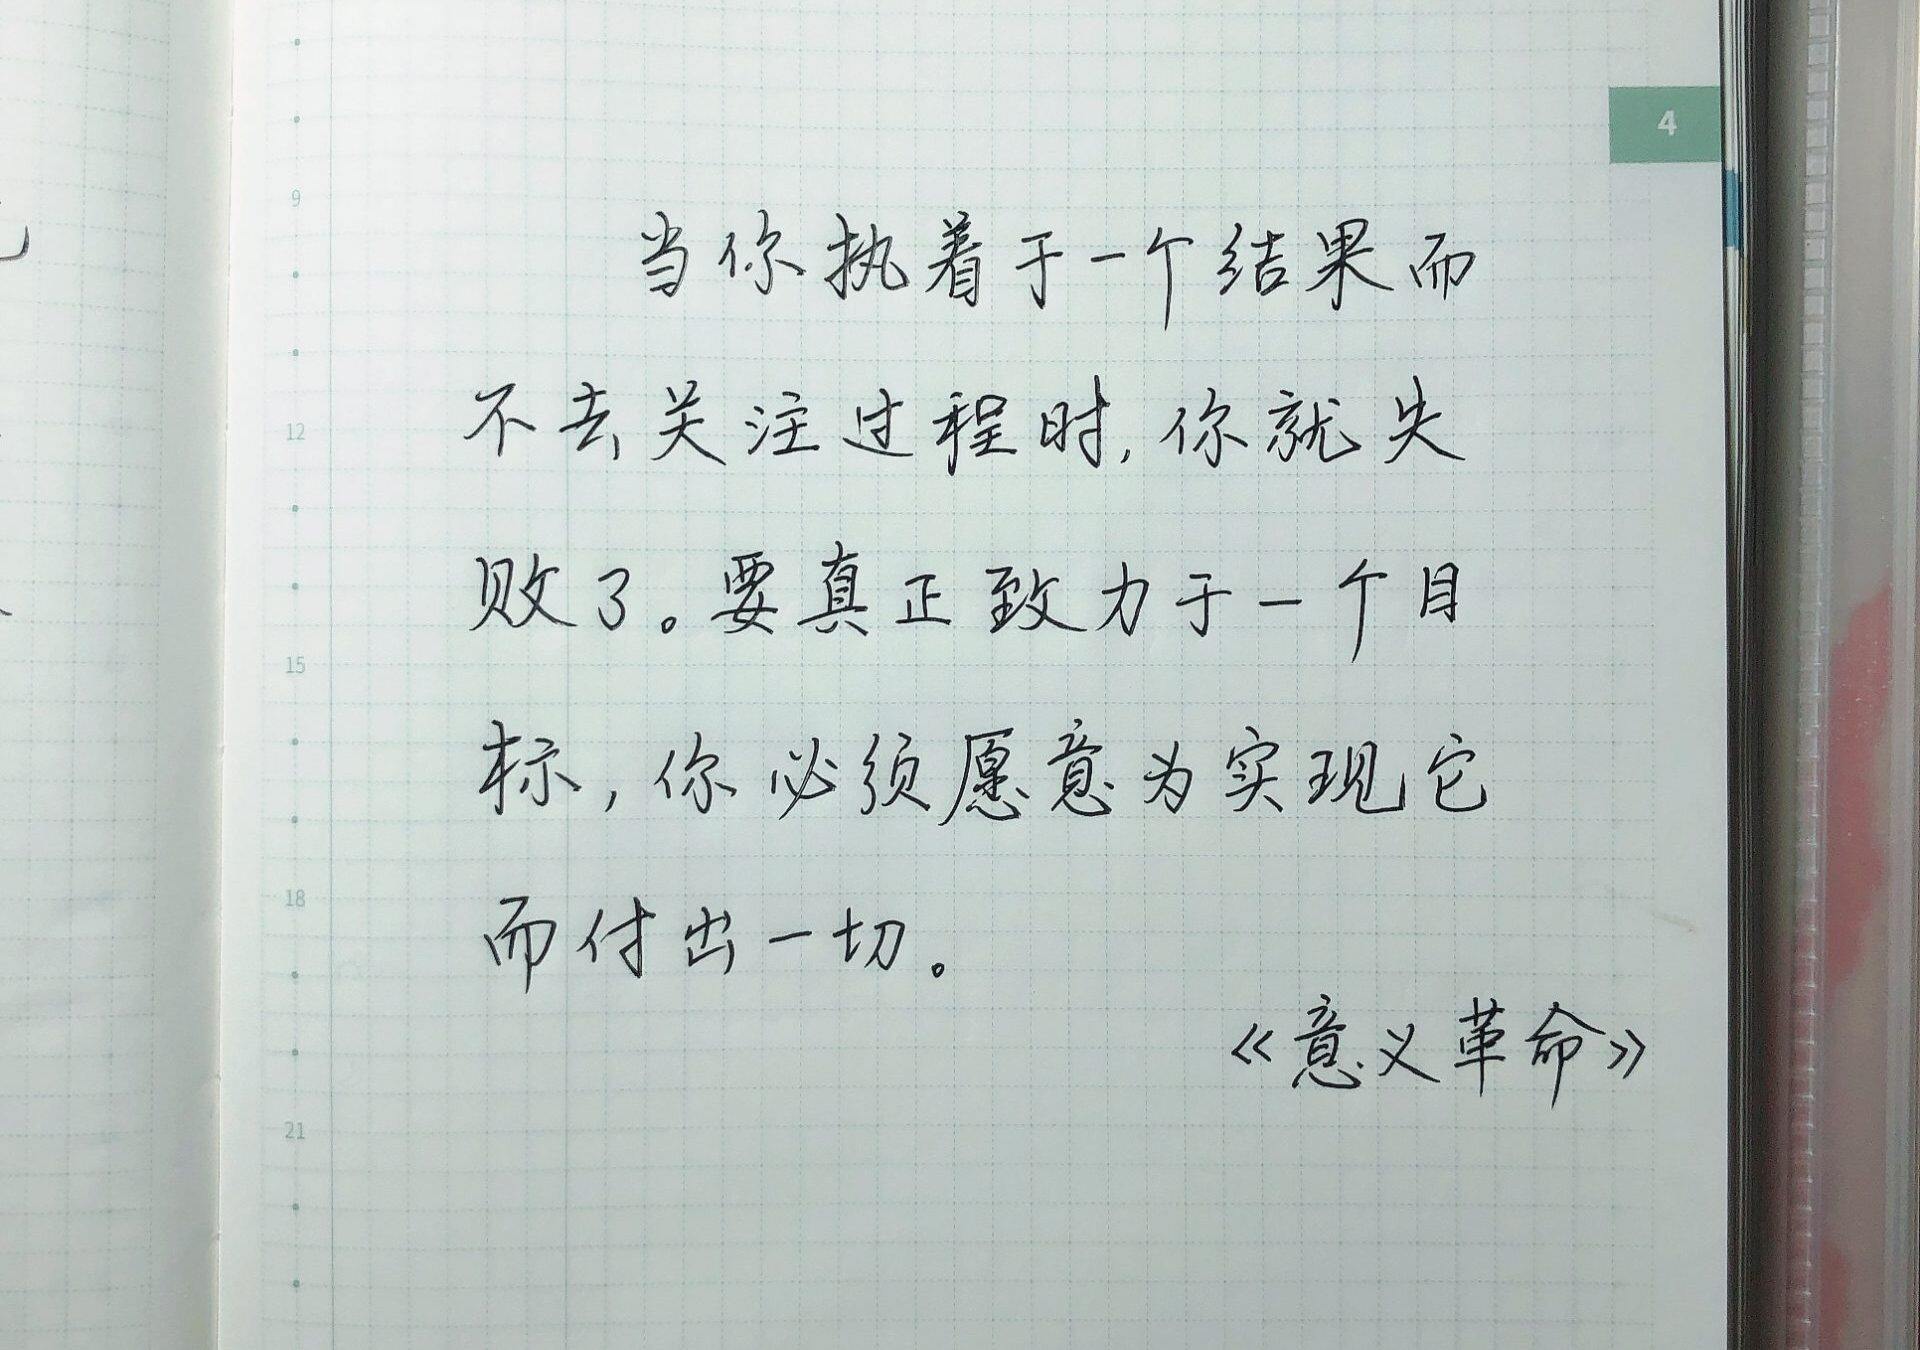 4
9
当你执着于一个结果而
不去关注过程时，你就失
12
败了。要真正致力于一个目
15
标，你必须愿意为实现它
18
而付出一切。
《意义革命》
21